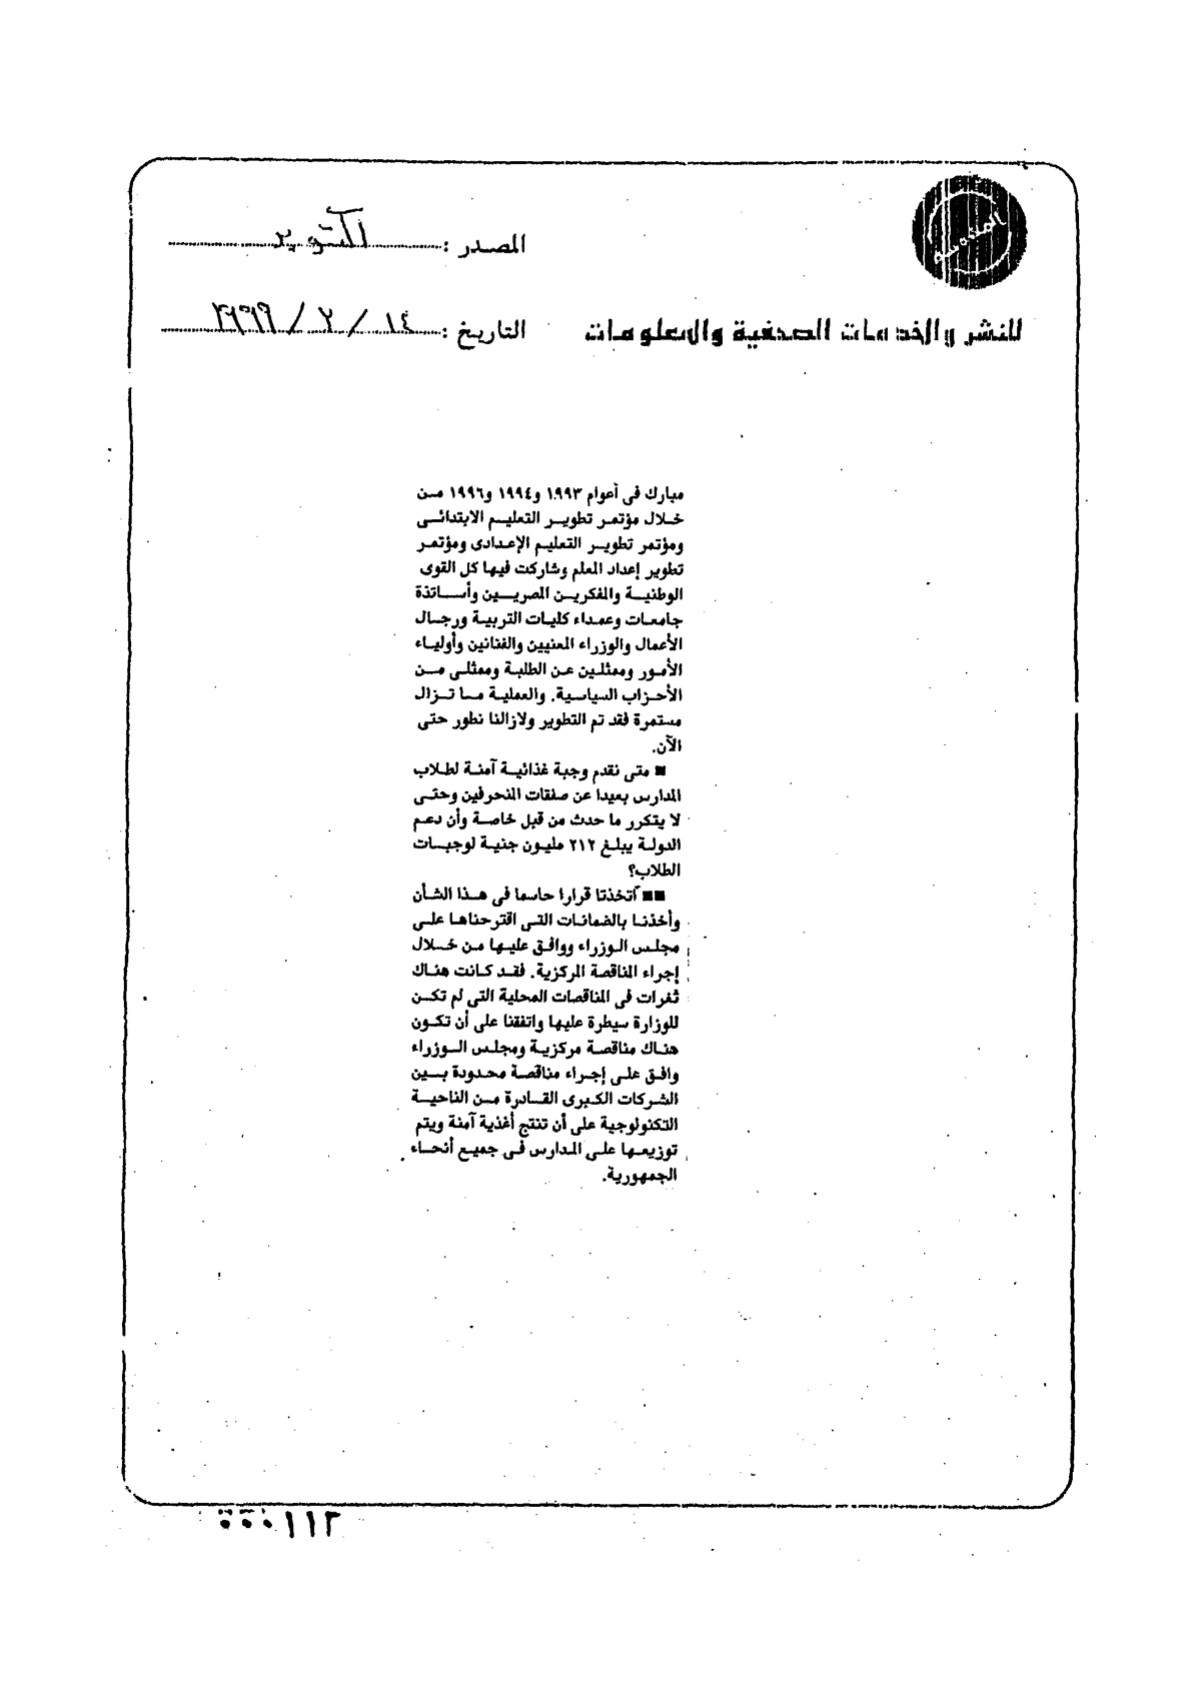 المصدر : أكتوبر
للنشر والخدمات الصحفية والمعلومات
التاريخ : ١٤ / ٢ /
مبارك فى أعوام ١٩٩٣ و١٩٩٤ و١٩٩٦ من
خلال مؤتمر تطوير التعليم الابتدائى
ومؤتمر تطوير التعليم الإعدادى ومؤتمر
تطوير إعداد المعلم وشاركت فيها كل القوى
الوطنية والمفكرين المصريين وأساتذة
جامعات وعمداء كليات التربية ورجال
الأعمال والوزراء المعنيين والفنانين وأولياء
الأمور وممثلين عن الطلبة وممثلى من
الأحزاب السياسية. والعملية ما تزال
مستمرة فقد تم التطوير ولازالنا نطور حتى
الآن.
■ متى نقدم وجبة غذائية آمنة لطلاب
المدارس بعيدا عن صفقات المنحرفين وحتى
لا يتكرر ما حدث من قبل خاصة وأن دعم
الدولة يبلغ ٢١٢ مليون جنية لوجبات
الطلاب؟
■■ أتخذتا قرارا حاسما فى هذا الشأن
وأخذنا بالضمانات التى اقترحناها على
مجلس الوزراء ووافق عليها من خلال
إجراء المناقصة المركزية. فقد كانت هناك
ثغرات فى المناقصات المحلية التى لم تكن
للوزارة سيطرة عليها واتفقنا على أن تكون
هناك مناقصة مركزية ومجلس الوزراء
وافق على إجراء مناقصة محدودة بين
الشركات الكبرى القادرة من الناحية
التكنولوجية على أن تنتج أغذية آمنة ويتم
توزيعها على المدارس فى جميع أنحاء
الجمهورية.
٠٠٠١١٢